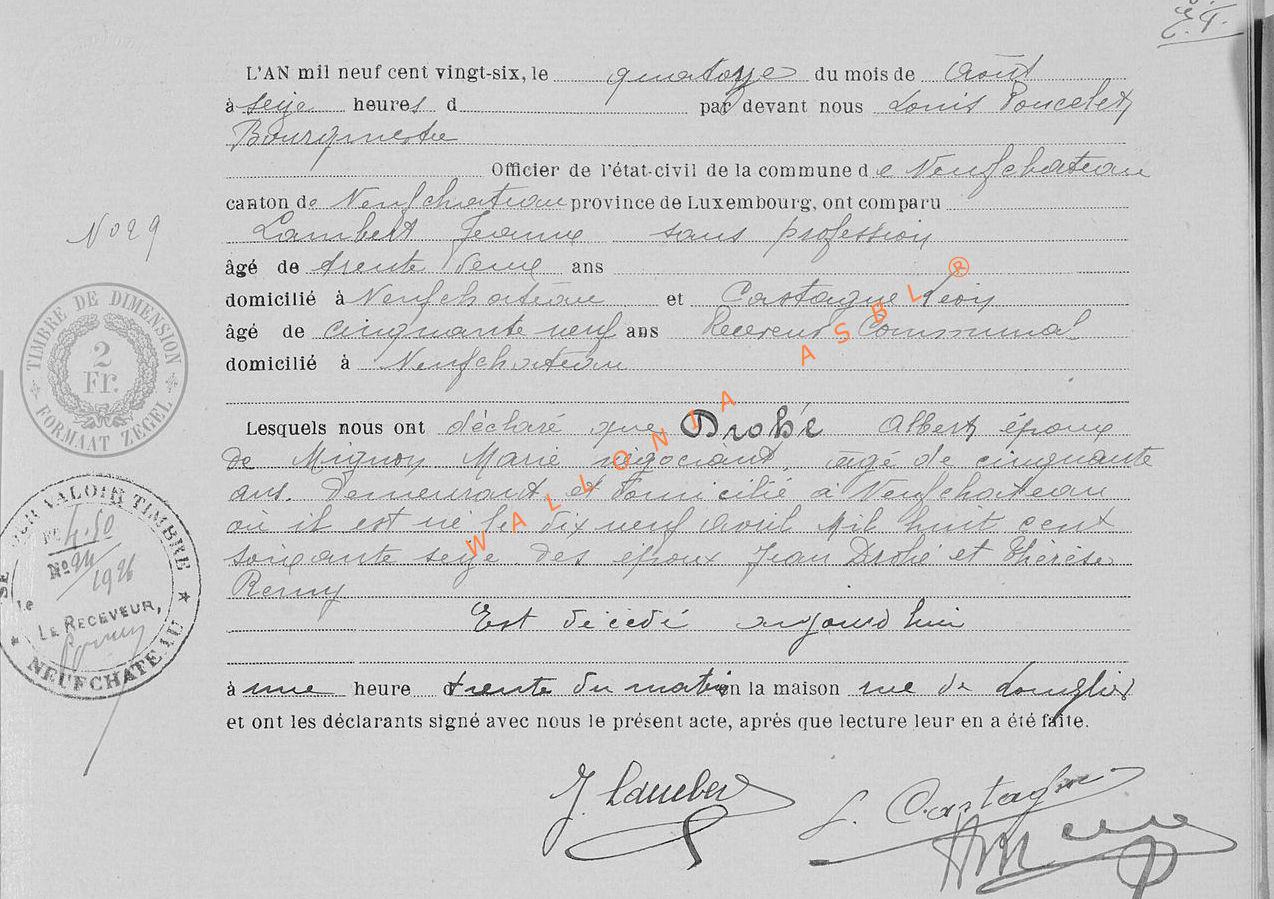 E.T.
L'AN mil neuf cent vingt-six, le quatorze du mois de Août
à seize heures d par devant nous Louis Poncelet
Bourgmestre
Officier de l'état-civil de la commune de Neufchateau
canton de Neufchateau province de Luxembourg, ont comparu
No 29
Lambert Jeanne sans profession
âgé de trente deux ans
domicilié à Neufchateau et Castagne Léon
âgé de cinquante neuf ans Receveur Communal
domicilié à Neufchateau
TIMBRE DE DIMENSION
2
Fr.
FORMAAT ZEGEL
WALLONIA ASBL ®
Lesquels nous ont déclaré que Drohé Albert époux
de Mignon Marie négociant, âgé de cinquante
ans. Demeurant et domicilié à Neufchateau
où il est né le dix neuf avril Mil huit cent
soixante seize des époux Jean Drohé et Thérèse
Remy
VALOIR TIMBRE
4.50
No 24
1926
LE RECEVEUR,
NEUFCHATEAU
Est décédé aujourd'hui
à une heure d trente du matin en la maison rue de Longlier
et ont les déclarants signé avec nous le présent acte, après que lecture leur en a été faite.
J. Lambert
L. Castagne